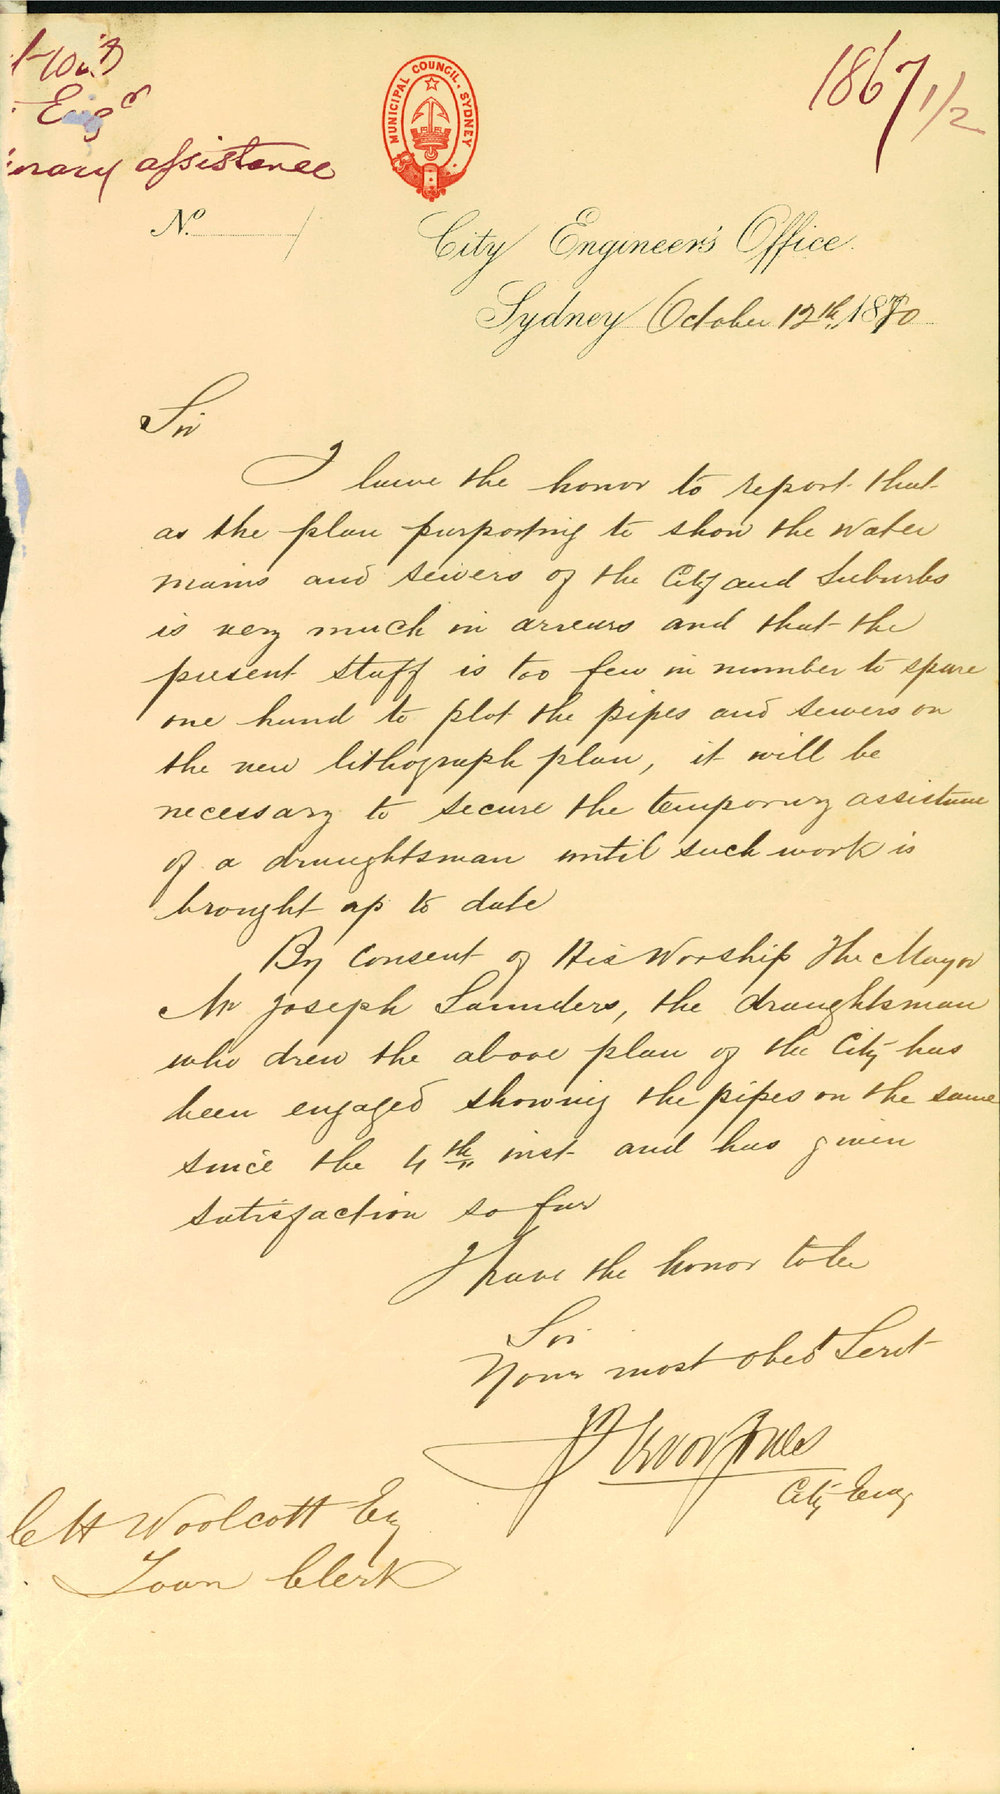 Engr
assistance
1867 1/2
MUNICIPAL COUNCIL. SYDNEY
No.
City Engineer's Office.
Sydney October 12th, 1880
Sir
I have the honor to report that
as the plan purporting to show the water
mains and sewers of the City and Suburbs
is very much in arrears and that the
present staff is too few in number to spare
one hand to plot the pipes and sewers on
the new lithograph plan, it will be
necessary to secure the temporary assistance
of a draughtsman until such work is
brought up to date
By consent of His Worship The Mayor
Mr Joseph Saunders, the draughtsman
who drew the above plan of the City has
been engaged showing the pipes on the same
since the 4th inst and has given
satisfaction so far
I have the honor to be
Sir
Your most obedt Servt
City Eng
C H Woolcott Esq
Town Clerk